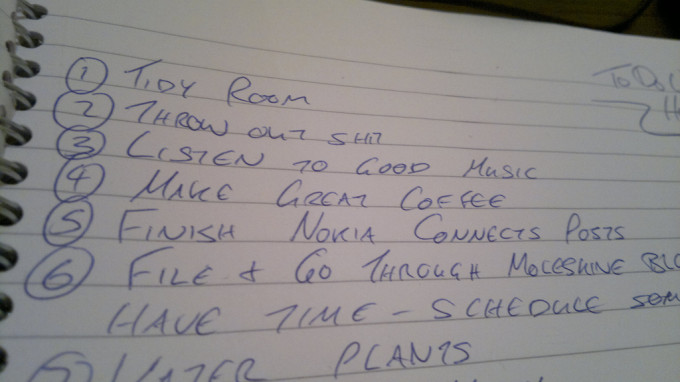 To Do
① Tidy Room
② Throw out shit
③ Listen to Good Music
④ Make Great Coffee
⑤ Finish Nokia Connects Posts
⑥ File & Go Through Moleshine
Have Time – Schedule
⑦ Water Plants